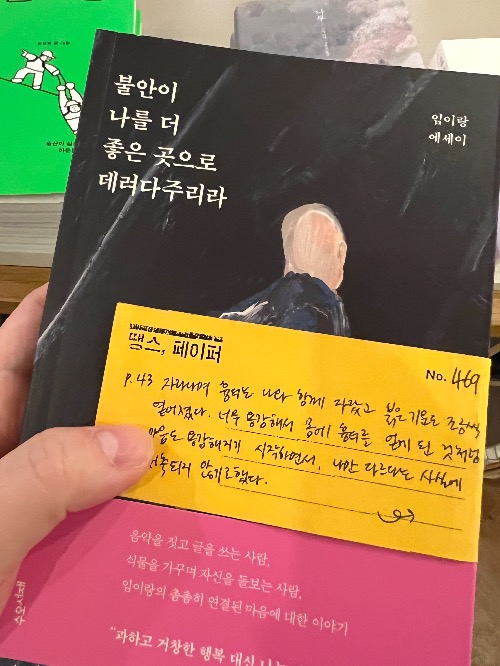 불안이
나를 더
좋은 곳으로
데려다주리라
임이랑
에세이
땡스, 페이퍼
No. 469
P.43 자라나며 흉터도 나와 함께 자랐고 붉은 기운도 조금씩
옅어졌다. 너무 용감해서 몸에 흉터를 얻게 된 것처럼
마음도 용감해지기 시작하면서, 나만 다르다는 사실에
위축되지 않기로 했다.
음악을 짓고 글을 쓰는 사람,
식물을 가꾸며 자신을 돌보는 사람,
임이랑의 촘촘히 연결된 마음에 대한 이야기
"과하고 거창한 행복 대신 나는